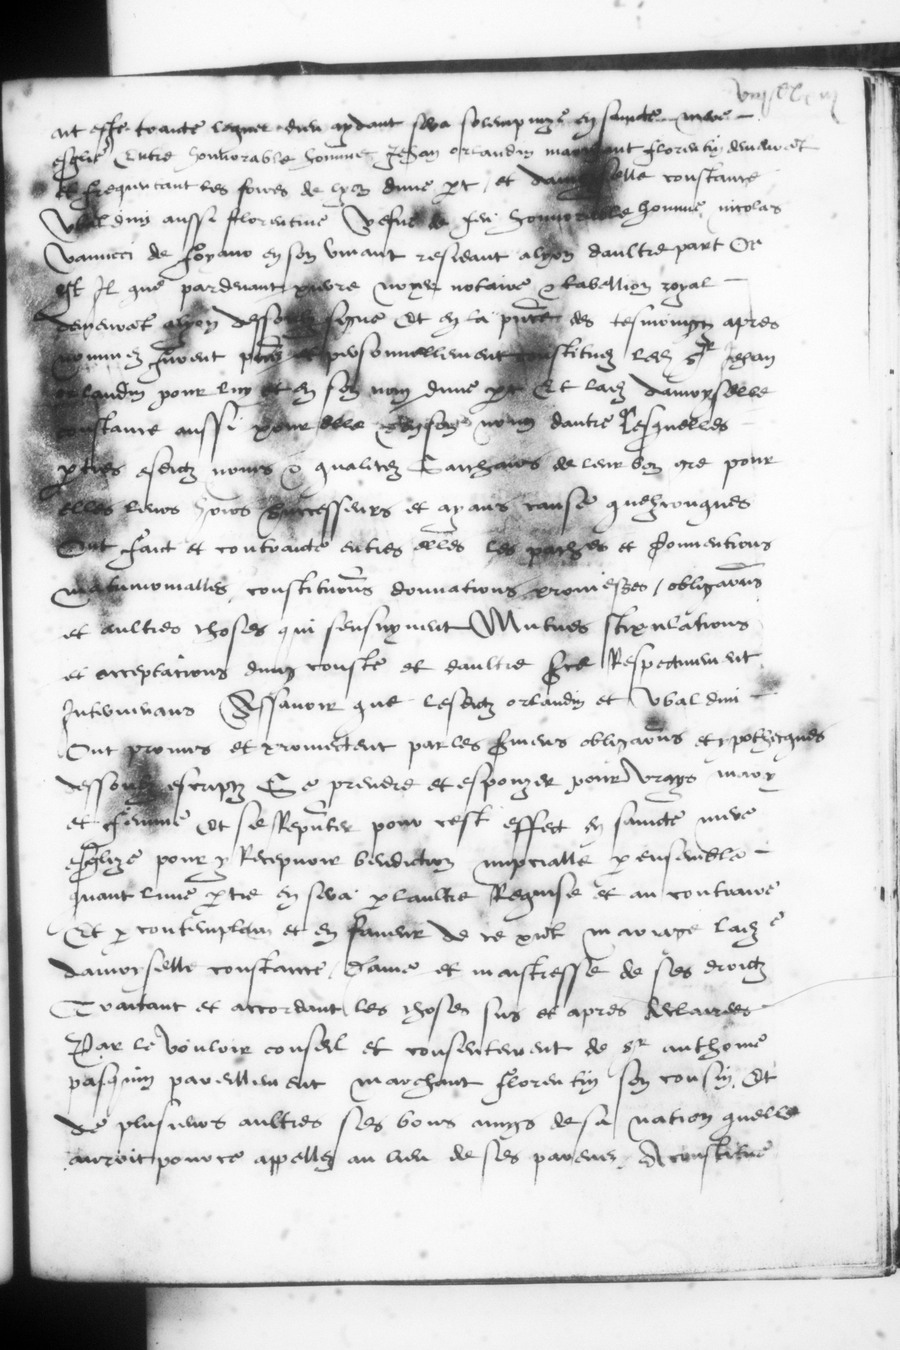 esté traicté lequel dieu aydant sera solempnizé en saincte mere
esglise Entre honnorable homme Jehan orlandin marchant florentin demeurãt
et frequentant les foires de lyon dune pt et damoyselle constance
Vbaldiny aussi florentine Vefue de feu honnorable homme nicolas
Vanucci de foyano en son viuant residant a lyon daultre part Or
est Il que pardeuant notaire & tabellion royal
demeurãt a lyon dessoubz signé Et en la pñce des tesmoingtz apres
nommez furent pñs et personnellement constituez led sr Jehan
orlandin pour luy et en son nom dune pt Et lad damoyselle
constance aussi pour elle & en son nom dautre Lesquelles
pties esdictz noms & qualitez de leur bon gre pour
elles leurs hoirs successeurs et ayans cause quelzconques
Ont faict et contraicté entres elles les pactes et conuentions
matrimonialles constitutiõns donnations promesses obligaõns
et aultres choses qui sensuyuent Mutues stipulations
et acceptations dung cousté et daultre Respectiuement
Interuenans Assauoir que lesdictz orlandin et Vbaldini
Ont promis et promectent par les obligaõns et ypothecques
dessoubz escriptz Se prendre et espouzer pour Vrays mary
et femme Et se Reputer pour cest effect en saincte mere
esglize pour y Recepuoir benediction nupcialle p ensemble
quant lune ptie en sera p laultre Requise et au contraire
Et p contemplaõn et en faueur de ce pñt mariage lad
damoyselle constance Dame et maistresse de ses droictz
Traictant et accordant les choses sus et apres declairees
Par le Vouloir conseil et consentement de sr anthoine
pasquin pareillement marchant florentin son cousin Et
de plusieurs aultres ses bons amys de sa nation quelle
auroit pour ce appellez au lieu de ses parens A constitué